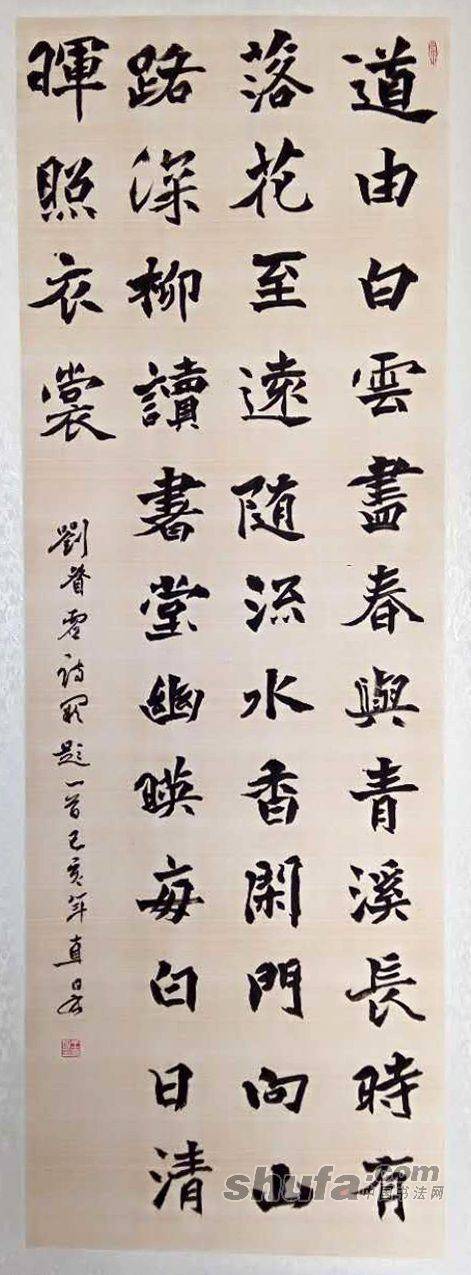 道由白雲盡春與青溪長時有
落花至遠随流水香閑門向山
路深柳讀書堂幽暎每白日清
暉照衣裳
劉眘虛詩闕題一首己亥年直
shufa.com
中国书法网